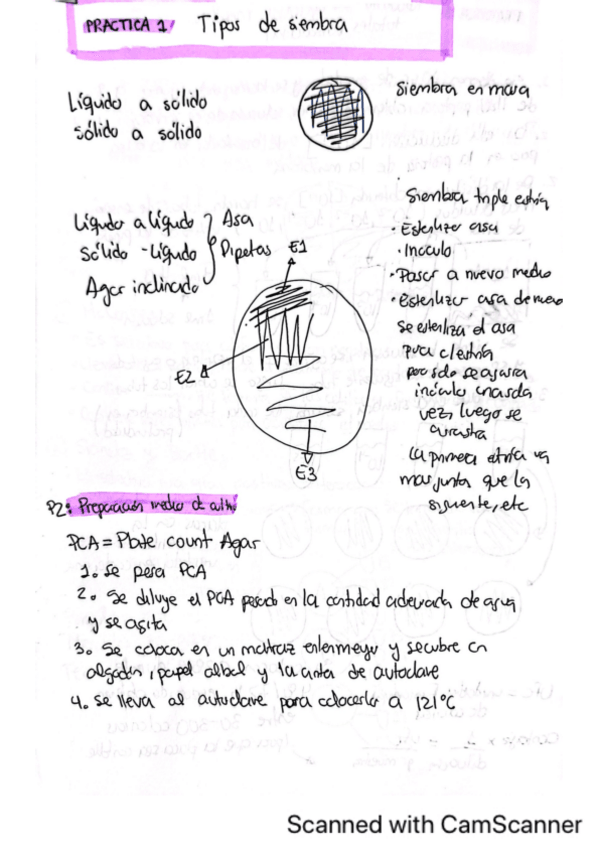 PRACTICA 1 Tipos de siembra
Líquido a sólido
sólido a sólido
Siembra en masa
Líquido a líquido
Sólido - Líquido
Agar inclinado
Asa
Pipetas
E1
E2
E3
Siembra triple estría
· Esterilizar asa
· Inóculo
· Pasar a nuevo medio
· esterilizar asa de nuevo
se esteriliza el asa
para c/estría
solo se agarra
inóculo una sola
vez, luego se
arrastra
La primera estría va
mas junta que la
siguente, etc
P2: Preparación medio de cultivo
PCA = Plate count Agar
1. Se pesa PCA
2. Se diluye el PCA pesado en la cantidad adecuada de agua
y se agita
3. Se coloca en un matraz enlenmeyer y se cubre con
algodón, papel albal y la cinta de autoclave
4. se lleva al autoclave para colocarlo a 121°C
Scanned with CamScanner